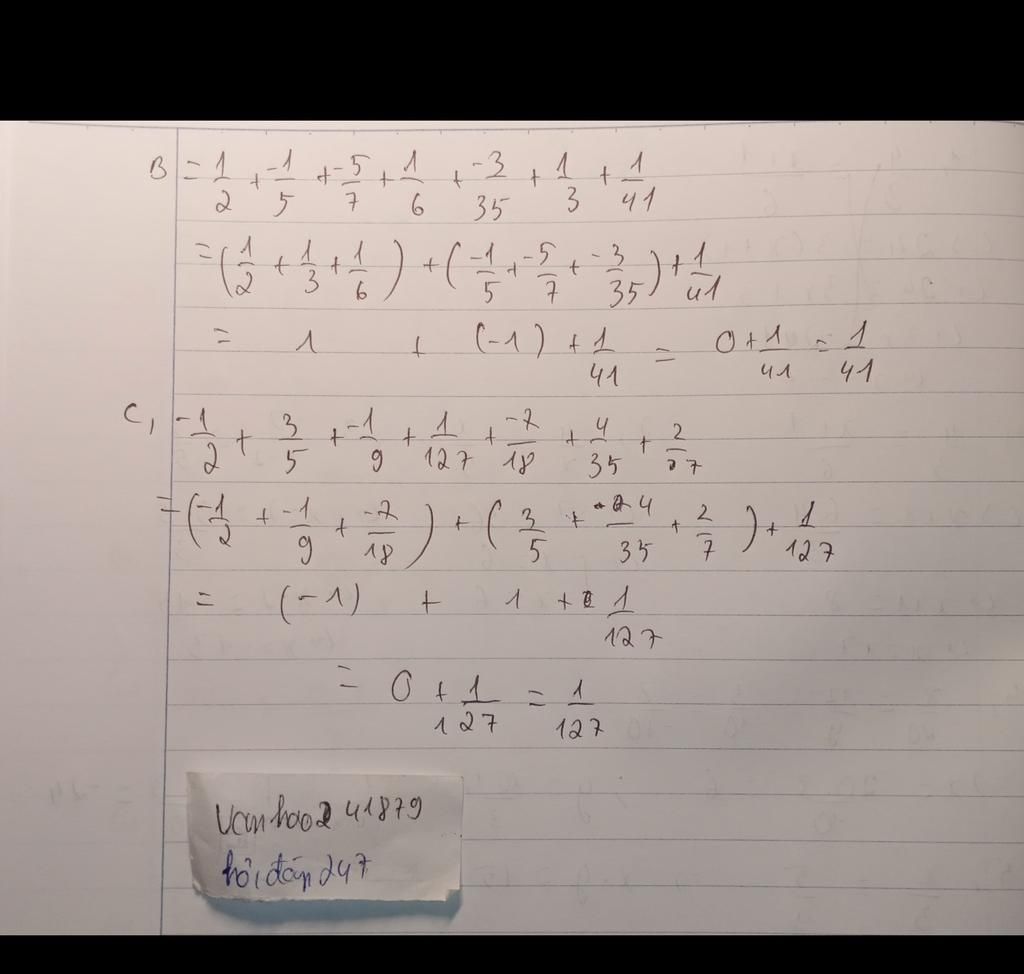 B = 1/2 + -1/5 + -5/7 + 1/6 + -3/35 + 1/3 + 1/41
= (1/2 + 1/3 + 1/6) + (-1/5 + -5/7 + -3/35) + 1/41
= 1 + (-1) + 1/41 = 0 + 1/41 = 1/41
C, -1/2 + 3/5 + -1/9 + 1/127 + -7/18 + 4/35 + 2/7
= (-1/2 + -1/9 + -7/18) + (3/5 + 4/35 + 2/7) + 1/127
= (-1) + 1 + 1/127
= 0 + 1/127 = 1/127
vanhao241879
hỏi đáp 247